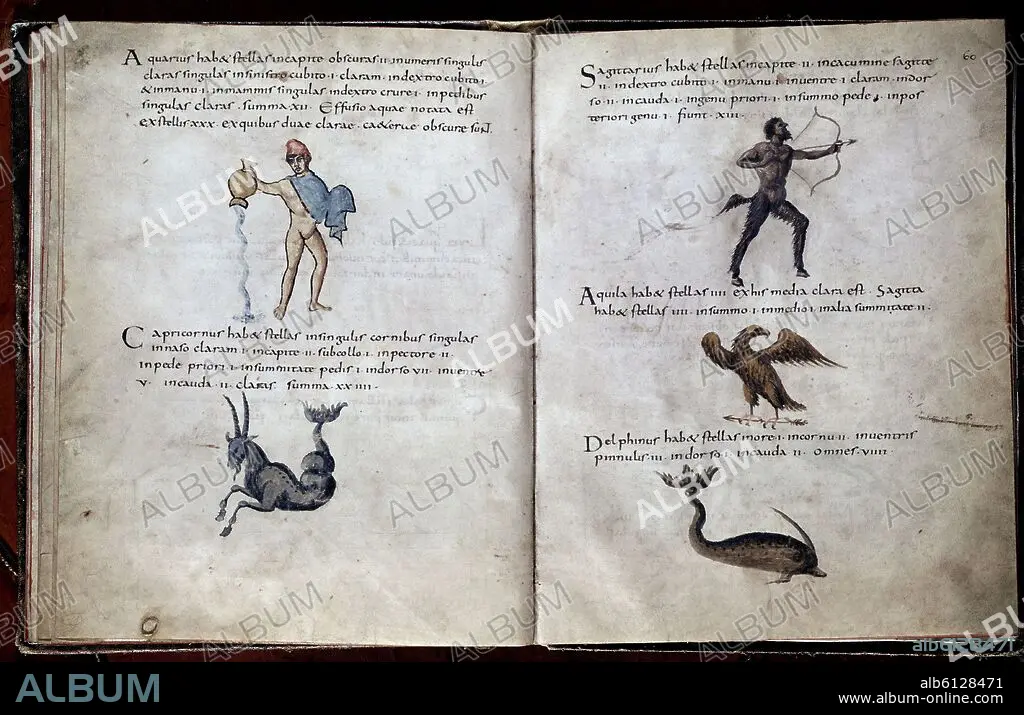 Aquarius hab& stellas incapite obscuras ·II· inumeris singulis
claras singulas insinistro cubito ·I· claram · indextro cubito ·I·
& inmanu ·I· inmammis singulas indextro crure ·I· inpedibus
singulas claras · summa XII · Effusio aquae notata est
exstellis XXX · exquibus duae clarae · cae&erae obscurae sunt.
Capricornus hab& stellas insingulis cornibus singulas
innaso claram ·I· incapite ·II· subcollo ·I· inpectore ·II·
inpede priori ·I· insummitate pedis ·I· indorso VII · inventre
V · incauda ·II· claras summa · XXIIII ·
60
Sagittarius hab& stellas incapite ·II· incacumine sagittae
II · indextro cubito ·I· inmanu ·I· inventre ·I· claram · indor
so ·II· incauda ·I· ingenu priori ·I· insummo pede ·I· inpos
teriori genu ·I· fiunt · XIII ·
Aquila hab& stellas IIII exhis media clara est · Sagitta
hab& stellas IIII · insummo ·I· inmedio ·I· inalia summitate ·II·
Delphinus hab& stellas inore ·I· incornu ·II· inventris
pinnulis ·III· indorso ·I· incauda ·II· omnes · VIIII ·
ALBUM
alb6128471
ALBUM
alb6128471
www.album-online.com